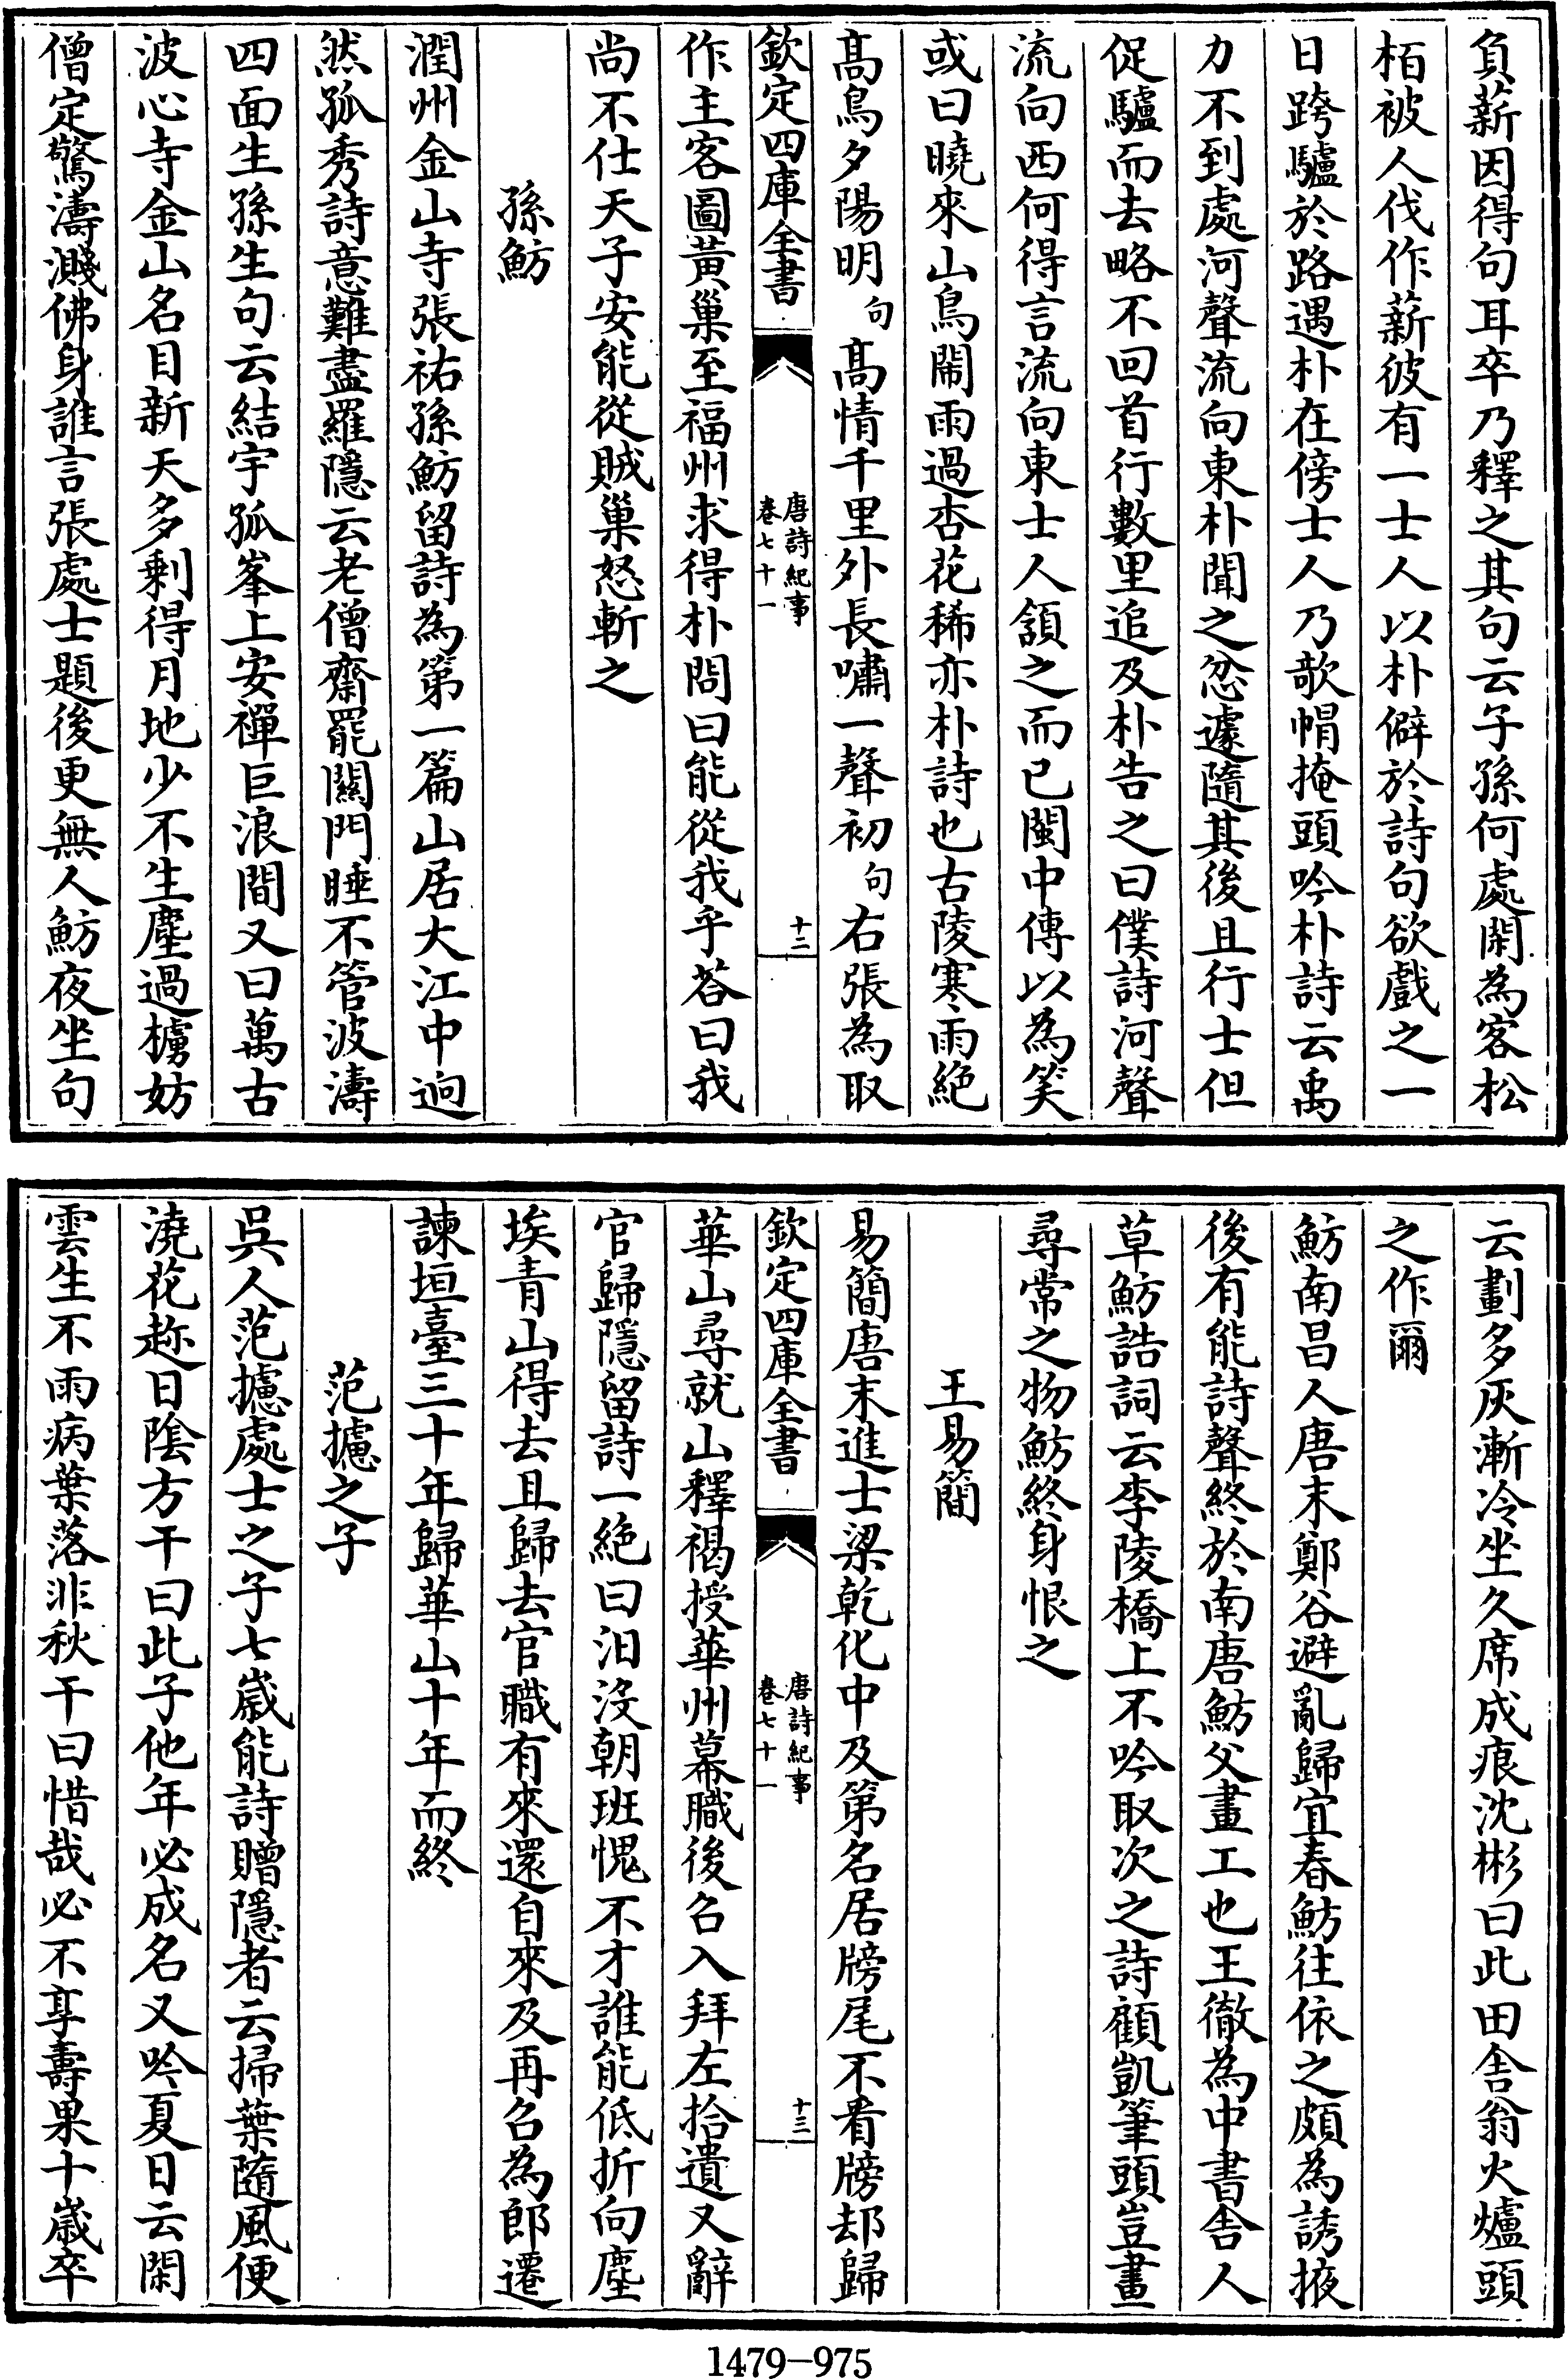 負薪因得句耳卒乃釋之其句云子孫何處閑為客松
栢被人伐作薪彼有一士人以朴僻於詩句欲戲之一
日跨驢於路遇朴在傍士人乃欹帽掩頭吟朴詩云禹
力不到處河聲流向東朴聞之忿遽隨其後且行士但
促驢而去略不回首行數里追及朴告之曰僕詩河聲
流向西何得言流向東士人頷之而已閩中傳以為笑
或曰曉來山鳥閙雨過杏花稀亦朴詩也古陵寒雨絶
髙鳥夕陽明句髙情千里外長嘯一聲初句右張為取
欽定四庫全書
唐詩紀事
卷七十一
十二
作主客圖黃巢至福州求得朴問曰能從我乎荅曰我
尚不仕天子安能從賊巢怒斬之
孫魴
潤州金山寺張祐孫魴留詩為第一篇山居大江中逈
然孤秀詩意難盡羅隱云老僧齋罷關門睡不管波濤
四面生孫生句云結宇孤峯上安禪巨浪間又曰萬古
波心寺金山名目新天多剩得月地少不生塵過櫓妨
僧定驚濤濺佛身誰言張處士題後更無人魴夜坐句
云劃多灰漸冷坐久席成痕沈彬曰此田舍翁火爐頭
之作爾
魴南昌人唐末鄭谷避亂歸宜春魴往依之頗為誘掖
後有能詩聲終於南唐魴父畫工也王徹為中書舍人
草魴誥詞云李陵橋上不吟取次之詩顧凱筆頭豈畫
尋常之物魴終身恨之
王易簡
易簡唐末進士梁乾化中及第名居牓尾不看牓却歸
欽定四庫全書
唐詩紀事
卷七十一
十三
華山尋就山釋褐授華州幕職後名入拜左拾遺又辭
官歸隱留詩一絶曰汨沒朝班愧不才誰能低折向塵
埃青山得去且歸去官職有來還自來及再召為郎遷
諫垣臺三十年歸華山十年而終
范攄之子
吳人范攄處士之子七嵗能詩贈隱者云掃葉隨風便
澆花趂日陰方干曰此子他年必成名又吟夏日云閑
雲生不雨病葉落非秋干曰惜哉必不享壽果十嵗卒
1479-975